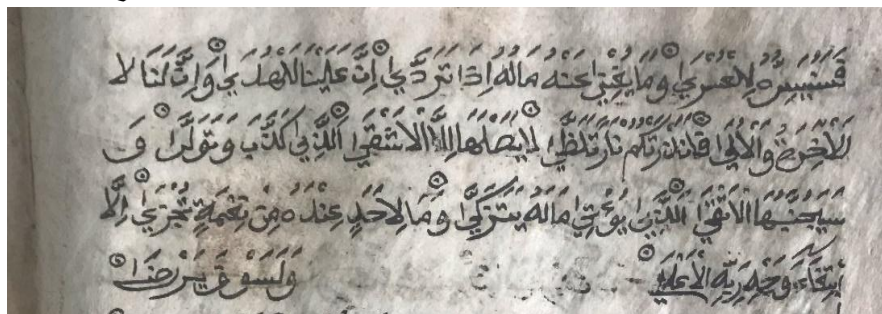 فَسَنُيَسِّرُهُ لِلْعُسْرَىٰ وَمَا يُغْنِي عَنْهُ مَالُهُ إِذَا تَرَدَّىٰ إِنَّ عَلَيْنَا لَلْهُدَىٰ وَإِنَّ لَنَا لَا
لَلْآخِرَةَ وَالْأُولَىٰ فَأَنْذَرْتُكُمْ نَارًا تَلَظَّىٰ لَا يَصْلَاهَا إِلَّا الْأَشْقَى الَّذِي كَذَّبَ وَتَوَلَّىٰ وَ
سَيُجَنَّبُهَا الْأَتْقَى الَّذِي يُؤْتِي مَالَهُ يَتَزَكَّىٰ وَمَا لِأَحَدٍ عِنْدَهُ مِنْ نِعْمَةٍ تُجْزَىٰ إِلَّا
ابْتِغَاءَ وَجْهِ رَبِّهِ الْأَعْلَىٰ وَلَسَوْفَ يَرْضَىٰ